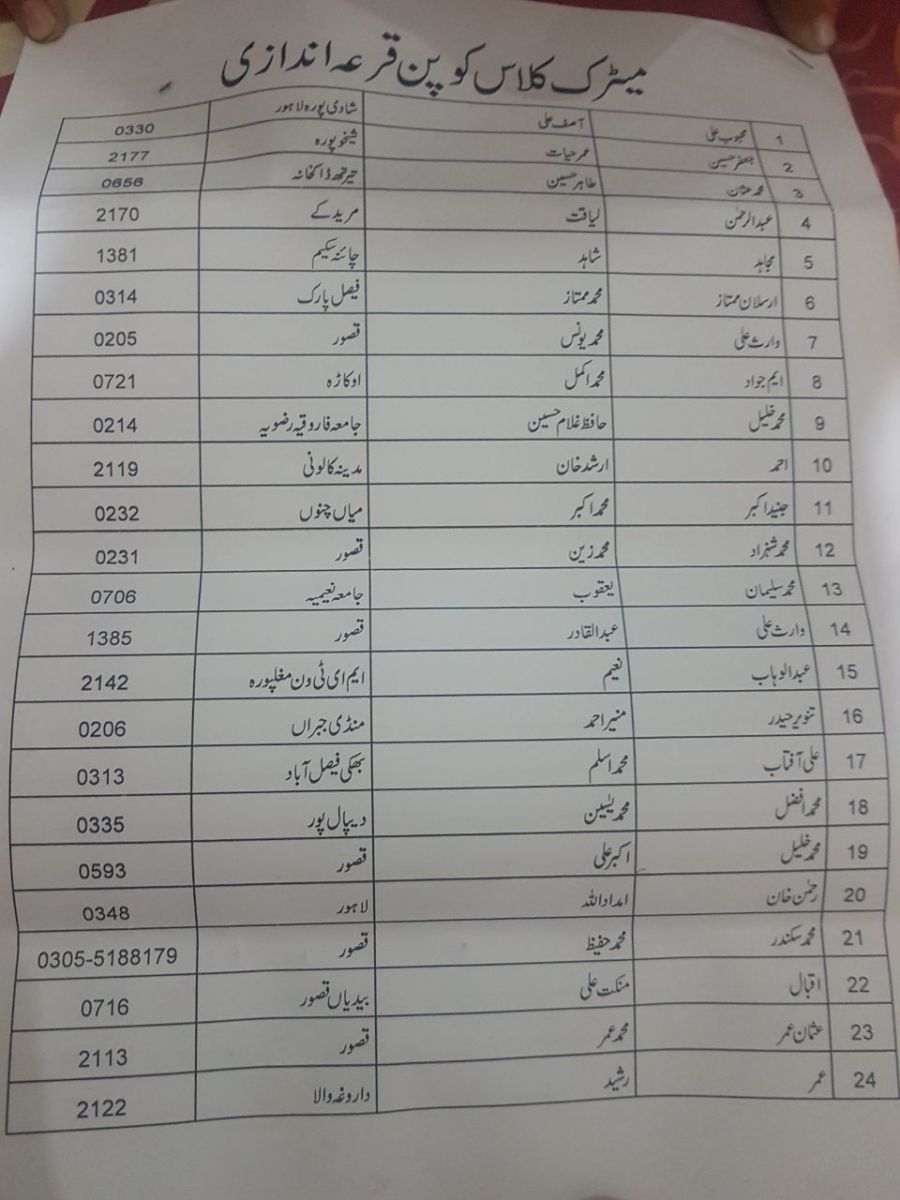 میٹرک کلاس کوپن قرعہ اندازی
1 محبوب علی آصف علی شادی پورہ لاہور 0330
2 جعفر حسین عمر حیات شیخوپورہ 2177
3 محمد عثمان طاہر حسین تیرتھ ڈاکخانہ 0656
4 عبدالرحمٰن لیاقت مریدکے 2170
5 مجاہد شاہد چائنہ سکیم 1381
6 ارسلان ممتاز محمد ممتاز فیصل پارک 0314
7 وارث علی محمد یونس قصور 0205
8 ایم جواد محمد اکمل اوکاڑہ 0721
9 محمد خلیل حافظ غلام حسین جامعہ فاروقیہ رضویہ 0214
10 احمد ارشد خان مدینہ کالونی 2119
11 جنید اکبر محمد اکبر میاں چنوں 0232
12 محمد شہزاد محمد زین قصور 0231
13 محمد سلیمان یعقوب جامعہ نعیمیہ 0706
14 وارث علی عبدالقادر قصور 1385
15 عبدالوہاب نعیم ایم ای ٹی ون مغلپورہ 2142
16 تنویر حیدر منیر احمد منڈی جبراں 0206
17 علی آفتاب محمد اسلم بھکی فیصل آباد 0313
18 محمد افضل محمد یٰسین دیپال پور 0335
19 محمد خلیل اکبر علی قصور 0593
20 رحمٰن خان امداد اللہ لاہور 0348
21 محمد سکندر محمد حفیظ قصور 0305-5188179
22 اقبال منکت علی بیدیاں قصور 0716
23 عثمان عمر محمد عمر قصور 2113
24 عمر رشید داروغہ والا 2122